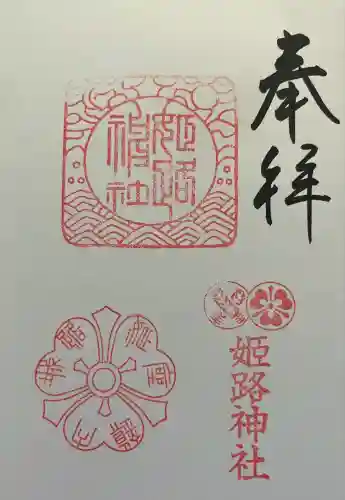 奉拝
姫路神社
姫路神社